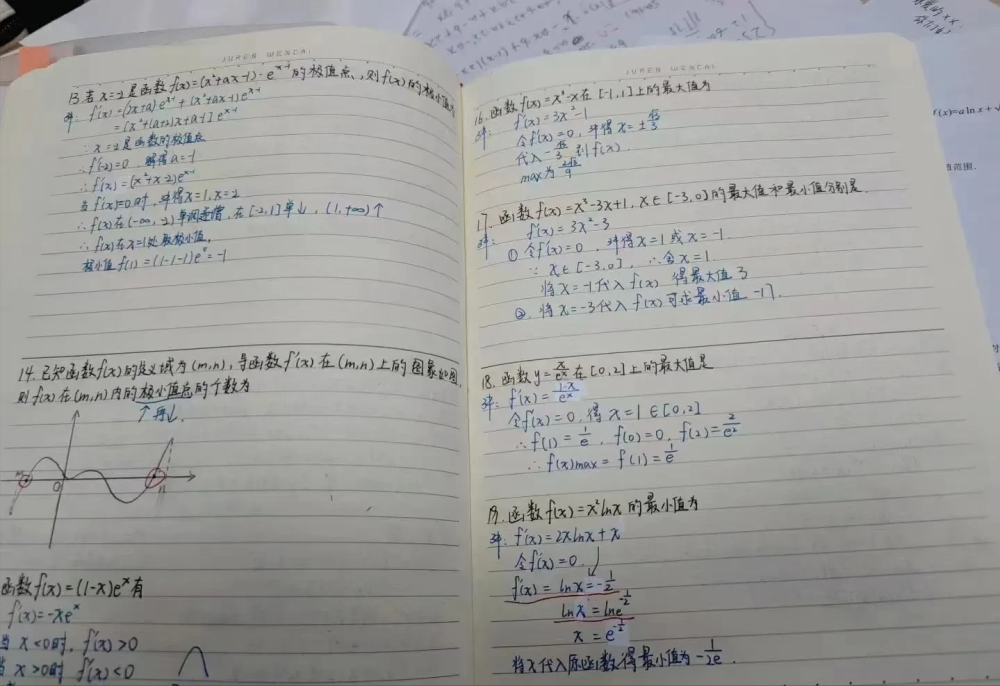 JUREN WENCAI
13.若x=2是函数f(x)=(x²+ax-1)·e^(x-1)的极值点,则f(x)的极小值为
解: f'(x)=(2x+a)e^(x-1)+(x²+ax-1)e^(x-1)
=[x²+(a+2)x+a-1]e^(x-1)
∵x=2是函数的极值点
∴f'(-2)=0 解得a=-1
∴f'(x)=(x²+x-2)e^(x-1)
当f'(x)=0时,解得x=1,x=2
∴f(x)在(-∞,2)单调递增,在[-2,1]单↓,(1,+∞)↑
∴f(x)在x=1处取极小值,
极小值f(1)=(1-1-1)e⁰=-1
14.已知函数f(x)的定义域为(m,n),导函数f'(x)在(m,n)上的图象如图,
则f(x)在(m,n)内的极小值点的个数为
↑再↓.
O
函数f(x)=(1-x)e^x有
f'(x)=-xe^x
当x<0时,f'(x)>0
当x>0时f'(x)<0
JUREN WENCAI
16.函数f(x)=x³-x在[-1,1]上的最大值为
解: f'(x)=3x²-1
令f'(x)=0,解得x=±√3/3
代入-√3/3到f(x).
max为2√3/9
17.函数f(x)=x³-3x+1,x∈[-3,0]的最大值和最小值分别是
解: f'(x)=3x²-3
①令f'(x)=0.解得x=1或x=-1
∵x∈[-3,0],∴舍x=1.
将x=-1代入f(x)得最大值3
②.将x=-3代入f(x)可求最小值-17.
18.函数y=x/e^x在[0,2]上的最大值是
解: f'(x)=(1-x)/e^x
令f'(x)=0,得x=1∈[0,2]
∴f(1)=1/e,f(0)=0,f(2)=2/e²
∴f(x)max=f(1)=1/e
19.函数f(x)=x²lnx的最小值为
解: f'(x)=2xlnx+x
令f'(x)=0.
f'(x)=lnx=-1/2
lnx=lne^(-1/2)
x=e^(-1/2)
将x代入原函数得最小值为-1/2e.
f(x)=alnx+
值范围.